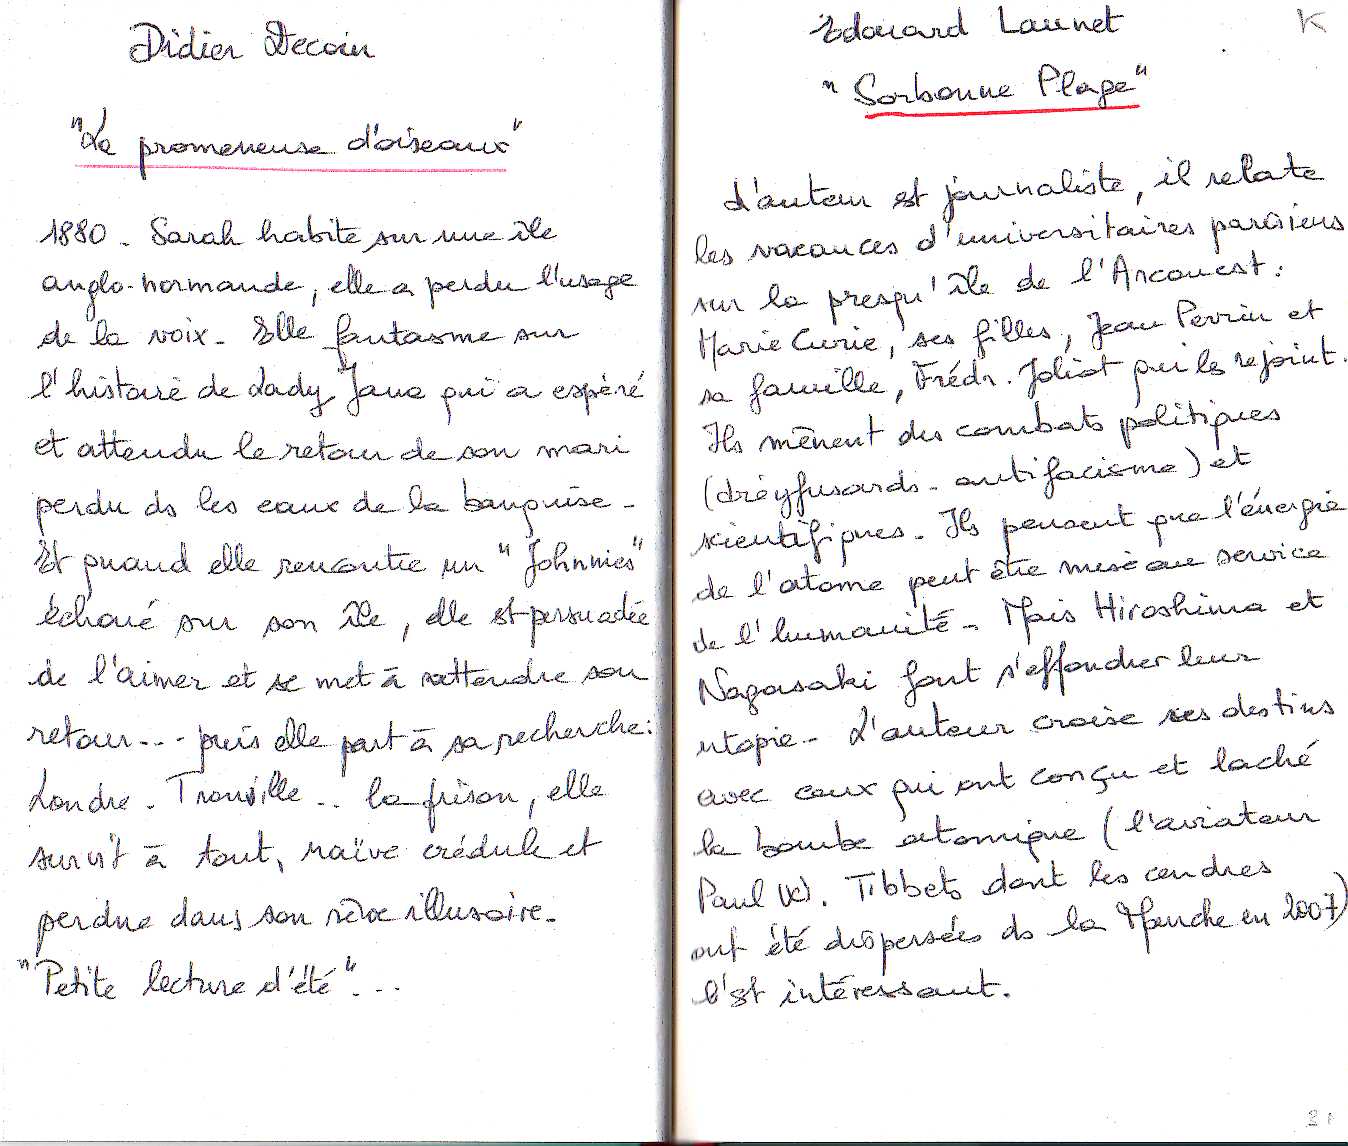 Didier Decoin
"La promeneuse d'oiseaux"
1880 - Sarah habite sur une île
anglo-normande, elle a perdu l'usage
de la voix - Elle fantasme sur
l'histoire de Lady Jane qui a espéré
et attendu le retour de son mari
perdu ds les eaux de la banquise -
Et quand elle rencontre un "Johnnies"
échoué sur son île, elle est persuadée
de l'aimer et se met à attendre son
retour... puis elle part à sa recherche :
Londre - Trouville .. la prison, elle
survit à tout, naïve crédule et
perdue dans son rêve illusoire -
"Petite lecture d'été"...
Edouard Launet
K
"Sorbonne Plage"
L'auteur est journaliste, il relate
les vacances d'universitaires parisiens
sur la presqu'île de l'Arcouest :
Marie Curie, ses filles, Jean Perrin et
sa famille, Frédr. Joliot qui les rejoint.
Ils mènent des combats politiques
(dreyfusards - antifacisme) et
scientifiques - Ils pensent que l'énergie
de l'atome peut être mise au service
de l'humanité - Mais Hiroshima et
Nagasaki font s'effondrer leur
utopie - L'auteur croise ses destins
avec ceux qui ont conçu et laché
la bombe atomique (l'aviateur
Paul W. Tibbets dont les cendres
ont été dispersées ds la Manche en 2007)
C'est intéressant.